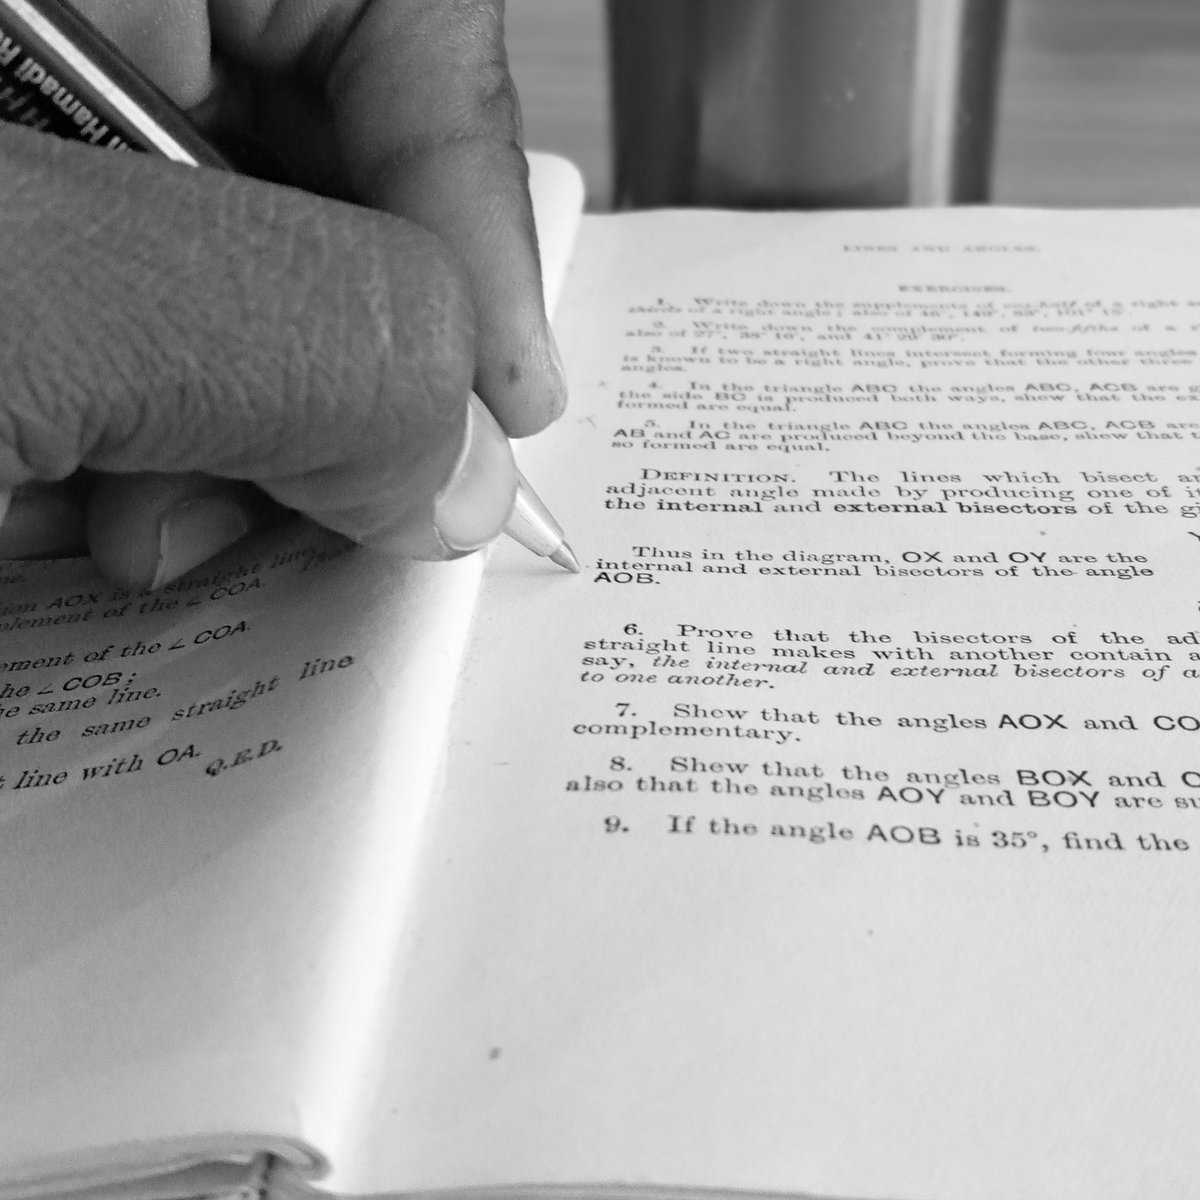 n Hamadi R
LINES AND ANGLES.
EXERCISES.
1. Write down the supplements of one-half of a right
thirds of a right angle; also of 46°, 149°, 83°, 101° 15'.
2. Write down the complement of two-fifths of a
also of 27°, 38° 16', and 41° 29' 30".
3. If two straight lines intersect forming four angles
is known to be a right angle, prove that the other three
angles.
4. In the triangle ABC the angles ABC, ACB are
the side BC is produced both ways, shew that the ex
formed are equal.
5. In the triangle ABC the angles ABC, ACB are
AB and AC are produced beyond the base, shew that
so formed are equal.
DEFINITION. The lines which bisect an
adjacent angle made by producing one of it
the internal and external bisectors of the gi
Y
Thus in the diagram, OX and OY are the
internal and external bisectors of the angle
AOB.
6. Prove that the bisectors of the ad
straight line makes with another contain a
say, the internal and external bisectors of a
to one another.
7. Shew that the angles AOX and CO
complementary.
8. Shew that the angles BOX and C
also that the angles AOY and BOY are su
9. If the angle AOB is 35°, find the
ne.
ion AOX is a straight line,
plement of the ∠ COA.
ement of the ∠ COA.
he ∠ COB;
he same line.
the same straight line
t line with OA.
Q.E.D.